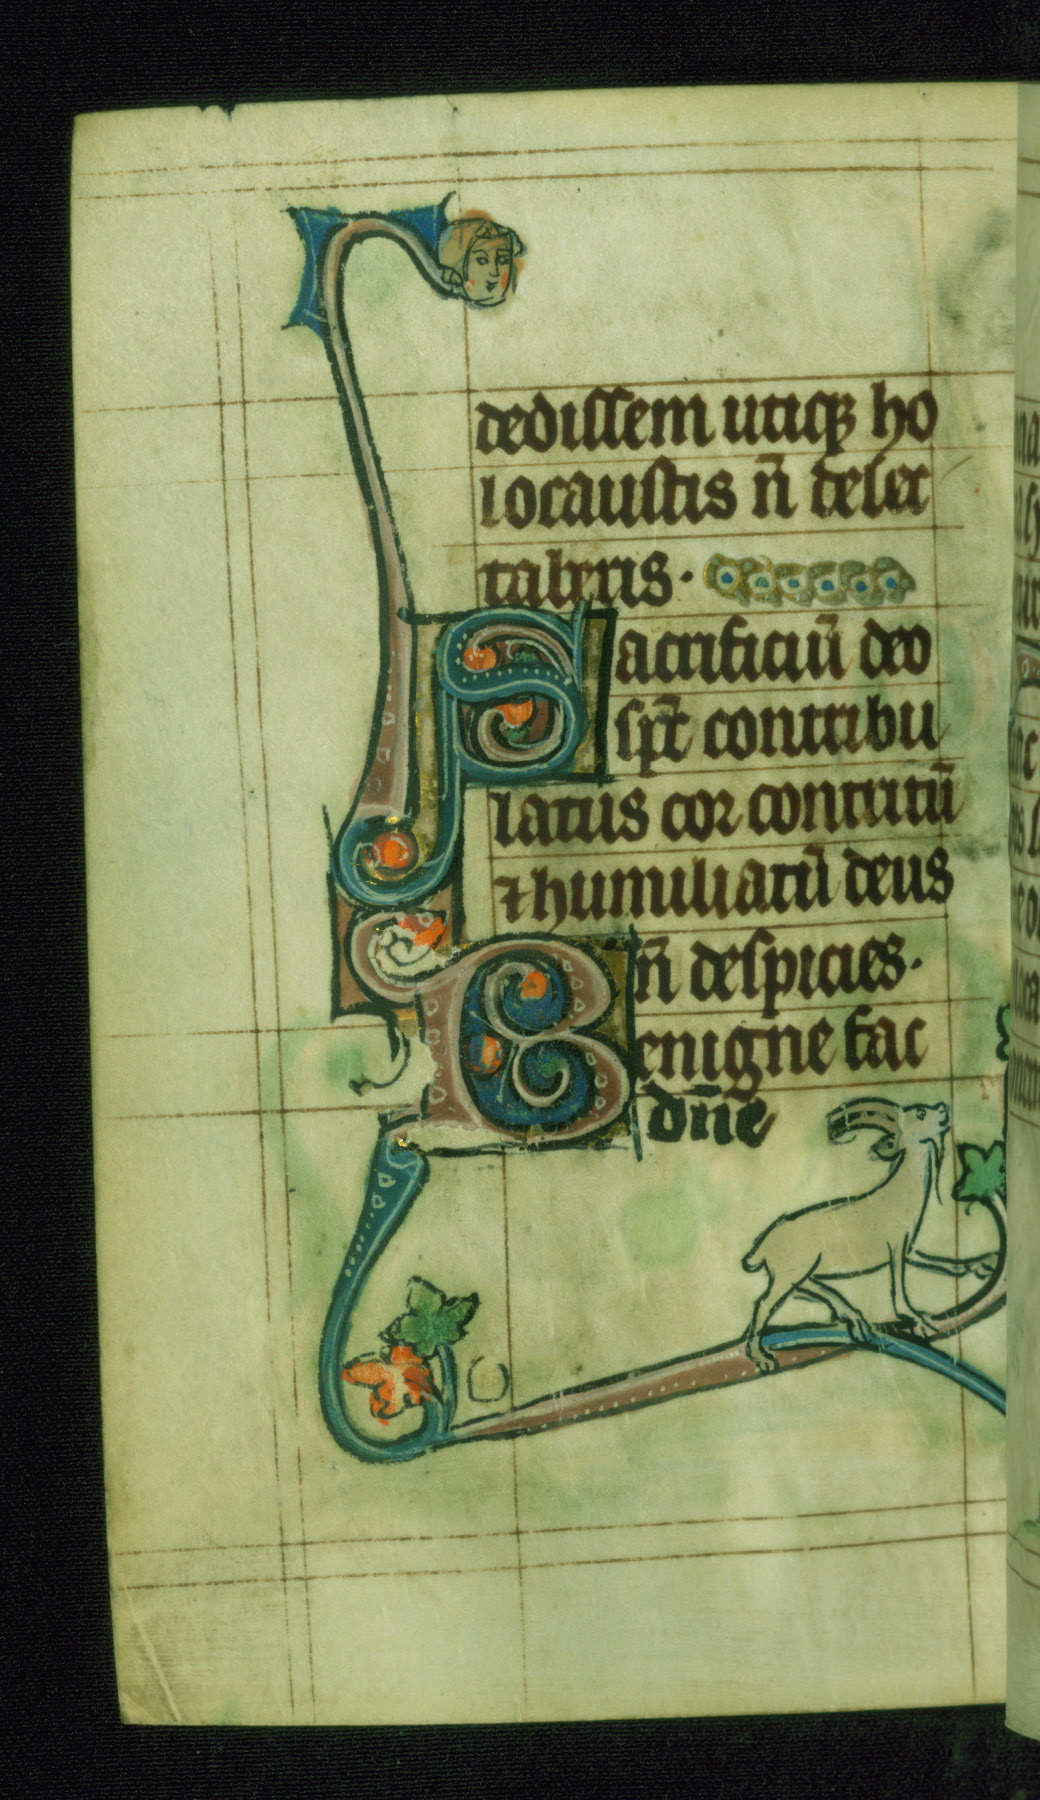 dedissem utiqꝫ ho
locaustis n̄ delec
taberis ·
Sacrificiū deo
sp̄c contribu
latus cor contritū
⁊ humiliatū deus
n̄ despicies ·
Benigne fac
dn̄e